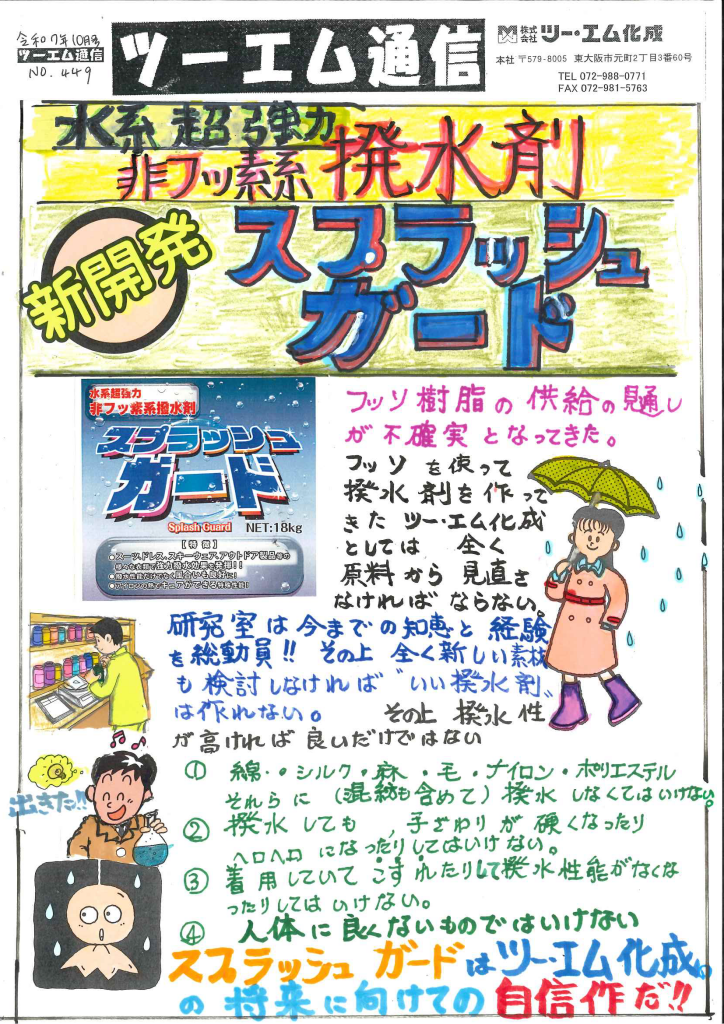 令和7年10月号
ツーエム通信
NO. 449
ツーエム通信
株式会社 ツー・エム化成
本社 〒579-8005 東大阪市元町2丁目3番60号
TEL 072-988-0771
FAX 072-981-5763
水系超強力
非フッ素系 撥水剤
新開発
スプラッシュ
ガード
水系超強力
非フッ素系撥水剤
スプラッシュ
ガード
Splash Guard NET:18kg
【特徴】
●スーツ、ドレス、スキーウェア、アウトドア製品等の
様々な衣類で強力撥水効果を発揮!!
●撥水性能だけでなく風合いも良好に!
●アイロンの熱でキュアができる特殊性能!
フッソ樹脂の供給の見通し
が不確実となってきた。
フッソを使って
撥水剤を作って
きたツー・エム化成
としては 全く
原料から見直さ
なければならない。
研究室は今までの知恵と経験
を総動員!! その上 全く新しい素材
も検討しなければ"いい撥水剤"
は作れない。 その上 撥水性
が高ければ良いだけではない
出きた!!
① 綿・・シルク・麻・毛・ナイロン・ポリエステル
それらに(混紡も含めて)撥水しなくてはいけない。
② 撥水しても、手ざわりが硬くなったり
ヘロヘロになったりしてはいけない。
③ 着用していてこすれたりして撥水性能がなくな
ったりしてはいけない。
④ 人体に良くないものではいけない
スプラッシュガードはツー・エム化成
の将来に向けての自信作だ!!